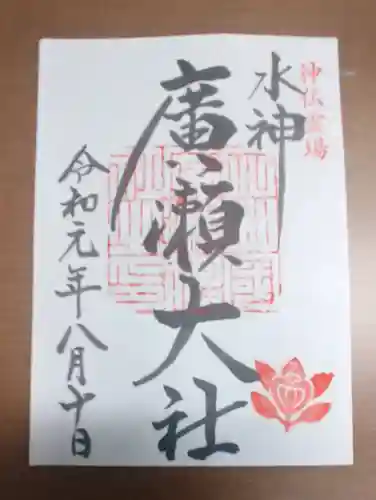 神仏霊場
水神
廣瀬大社
令和元年八月十日